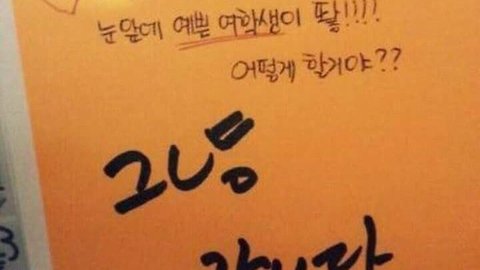 눈앞에 예쁜 여학생이 똻!!!!
어떻게 할거야??
그냥